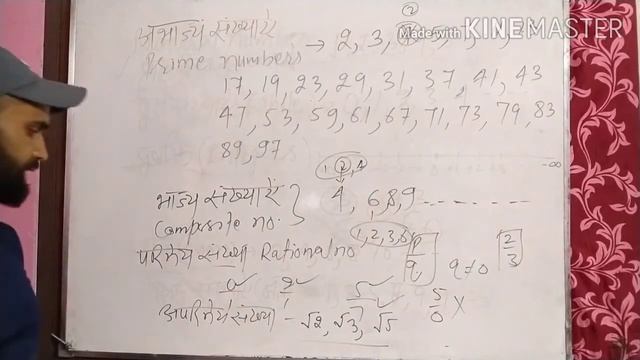 ②
अभाज्य संख्याएँ → 2, 3,
Made with KINEMASTER
Prime numbers
17, 19, 23, 29, 31, 37, 41, 43
47, 53, 59, 61, 67, 71, 73, 79, 83
89, 97
-∞
1, 2, 4
भाज्य संख्याएँ } 4, 6, 8, 9 --------
Composite no.
1, 2, 3, 6
परिमेय संख्या Rational no p/q q≠0 2/3
5/0 ×
अपरिमेय संख्या - √2, √3, √5